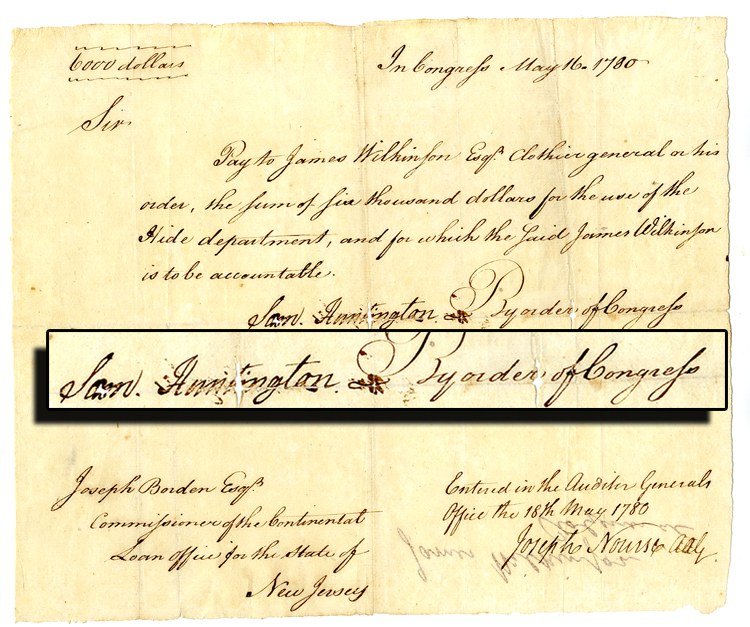 6000 dollars
In Congress May 16. 1780
Sir
Pay to James Wilkinson Esqr. Clothier general or his
order, the sum of six thousand dollars for the use of the
Hide department, and for which the said James Wilkinson
is to be accountable.
Sam. Huntington By order of Congress
Sam. Huntington By order of Congress
Joseph Borden Esqr.
Commissioner of the Continental
Loan Office for the State of
New Jersey
Entered in the Auditor Generals
Office the 18th May 1780
Joseph Nourse